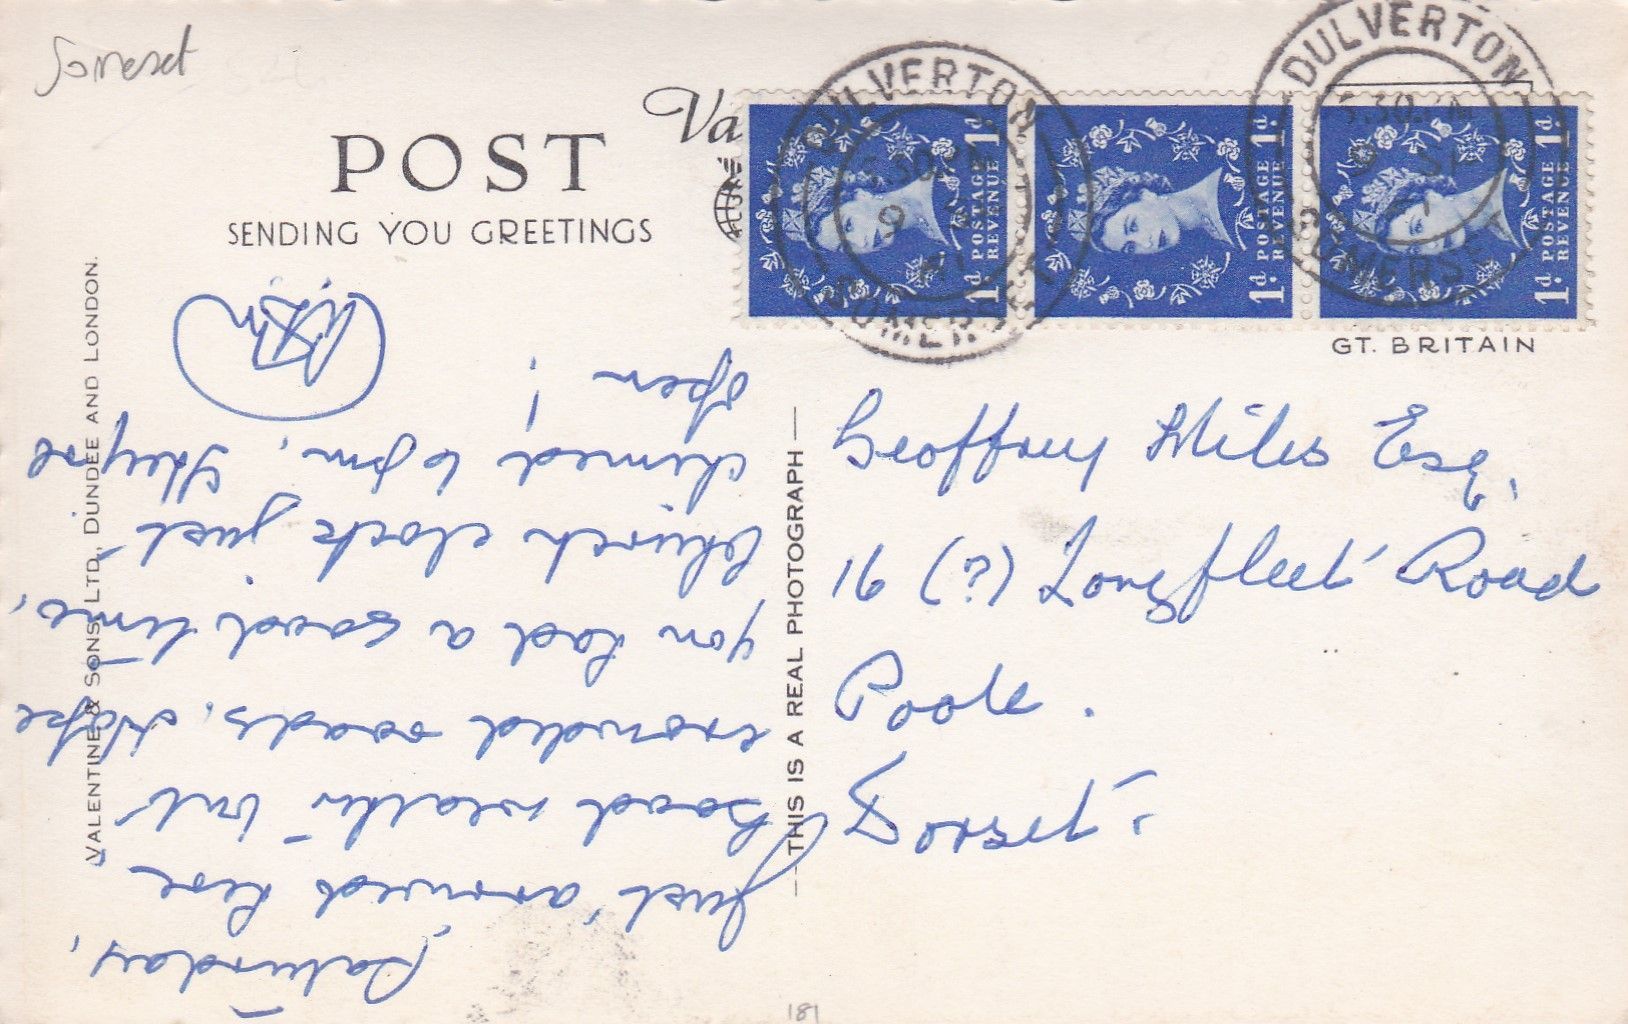 Somerset
Va
POST
SENDING YOU GREETINGS
DULVERTON
SOMERSET
DULVERTON
5.30 PM
SOMERSET
1d POSTAGE REVENUE 1d
1d POSTAGE REVENUE 1d
1d POSTAGE REVENUE 1d
GT. BRITAIN
VALENTINE & SONS, LTD., DUNDEE AND LONDON.
THIS IS A REAL PHOTOGRAPH
Saturday,
Just arrived here,
Good weather but
crowded roads. Hope
you had a good time,
Church clock just
chimed 6 pm, they're
open !
Geoffrey Miles Esq,
91 (?) Longfleet Road
Poole.
Dorset.
181